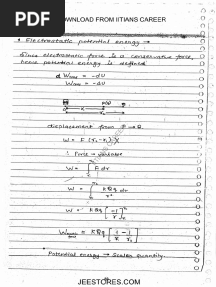 PDF DOWNLOAD FROM IITIANS CAREER
* Electrostatic potential energy →
Since electrostatic force is a conservative force,
hence potential energy is defined
dWcons = -dU
Wcons = -ΔU
displacement from P → Q
W = F (r₂-r₁) X
∴ Force → variable
W = ∫ F dr
W = ∫ KQq dr
W = KQq
W = KQq
Potential energy → Scalar quantity.
JEESTORES.COM